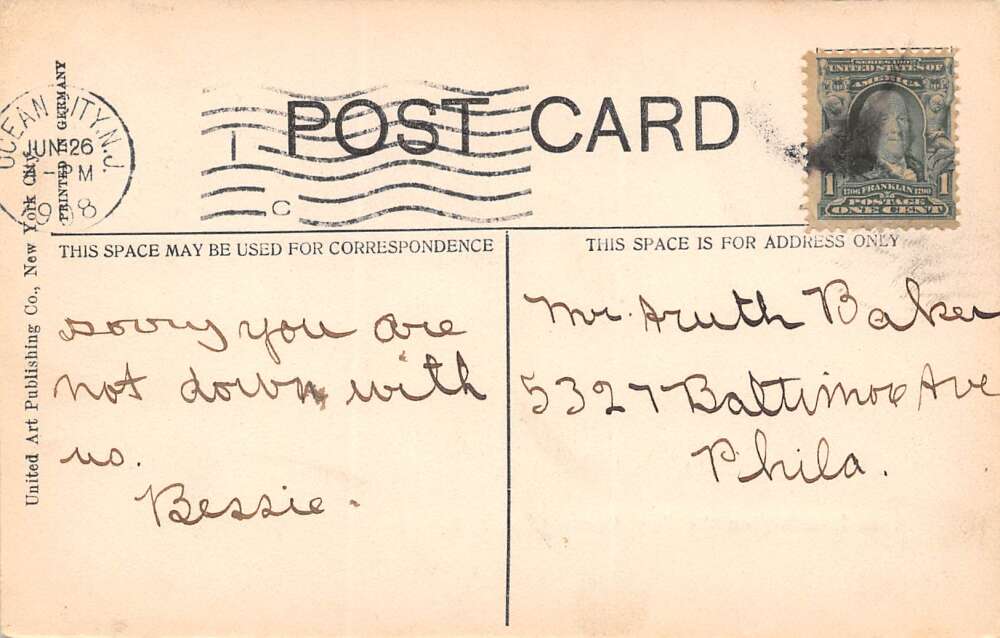 POST CARD
OCEAN CITY, N.J.
JUN 26
1-PM
1908
C
SERIES 1902
UNITED STATES OF
AMERICA
1 1706 FRANKLIN 1790 1
POSTAGE
ONE CENT
United Art Publishing Co., New York City.
PRINTED IN GERMANY
THIS SPACE MAY BE USED FOR CORRESPONDENCE
THIS SPACE IS FOR ADDRESS ONLY
sorry you are
not down with
us.
Bessie.
Mr. Aruth Baker
5327 Baltimore Ave
Phila.